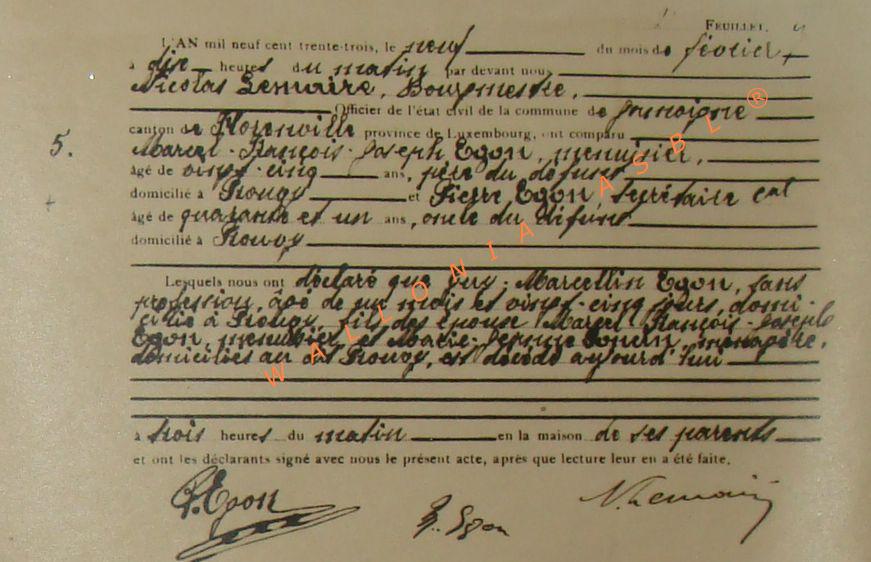 FEUILLET.
L'AN mil neuf cent trente-trois, le neuf du mois de février
à dix heures du matin par devant nous
Nicolas Lemaire, Bourgmestre,
Officier de l'état civil de la commune de Jamoigne
canton de Florenville province de Luxembourg, ont comparu
5.
Marcel-François-Joseph Egon, menuisier,
âgé de vingt-cinq ans, père du défunt
domicilié à Prouvy et Pierre Egon, secrétaire cal
âgé de quarante et un ans, oncle du défunt
domicilié à Prouvy
Lesquels nous ont déclaré que Guy-Marcellin Egon, sans
profession, âgé de un mois et vingt-cinq jours, domi-
cilié à Prouvy, fils des époux Marcel-François-Joseph
Egon, menuisier et Marie-Jeanne, ménagère,
domiciliés au dit Prouvy, est décédé aujourd'hui
à trois heures du matin en la maison de ses parents
et ont les déclarants signé avec nous le présent acte, après que lecture leur en a été faite.
P. Egon
Egon
N. Lemaire
WALLONIA ASBL ®